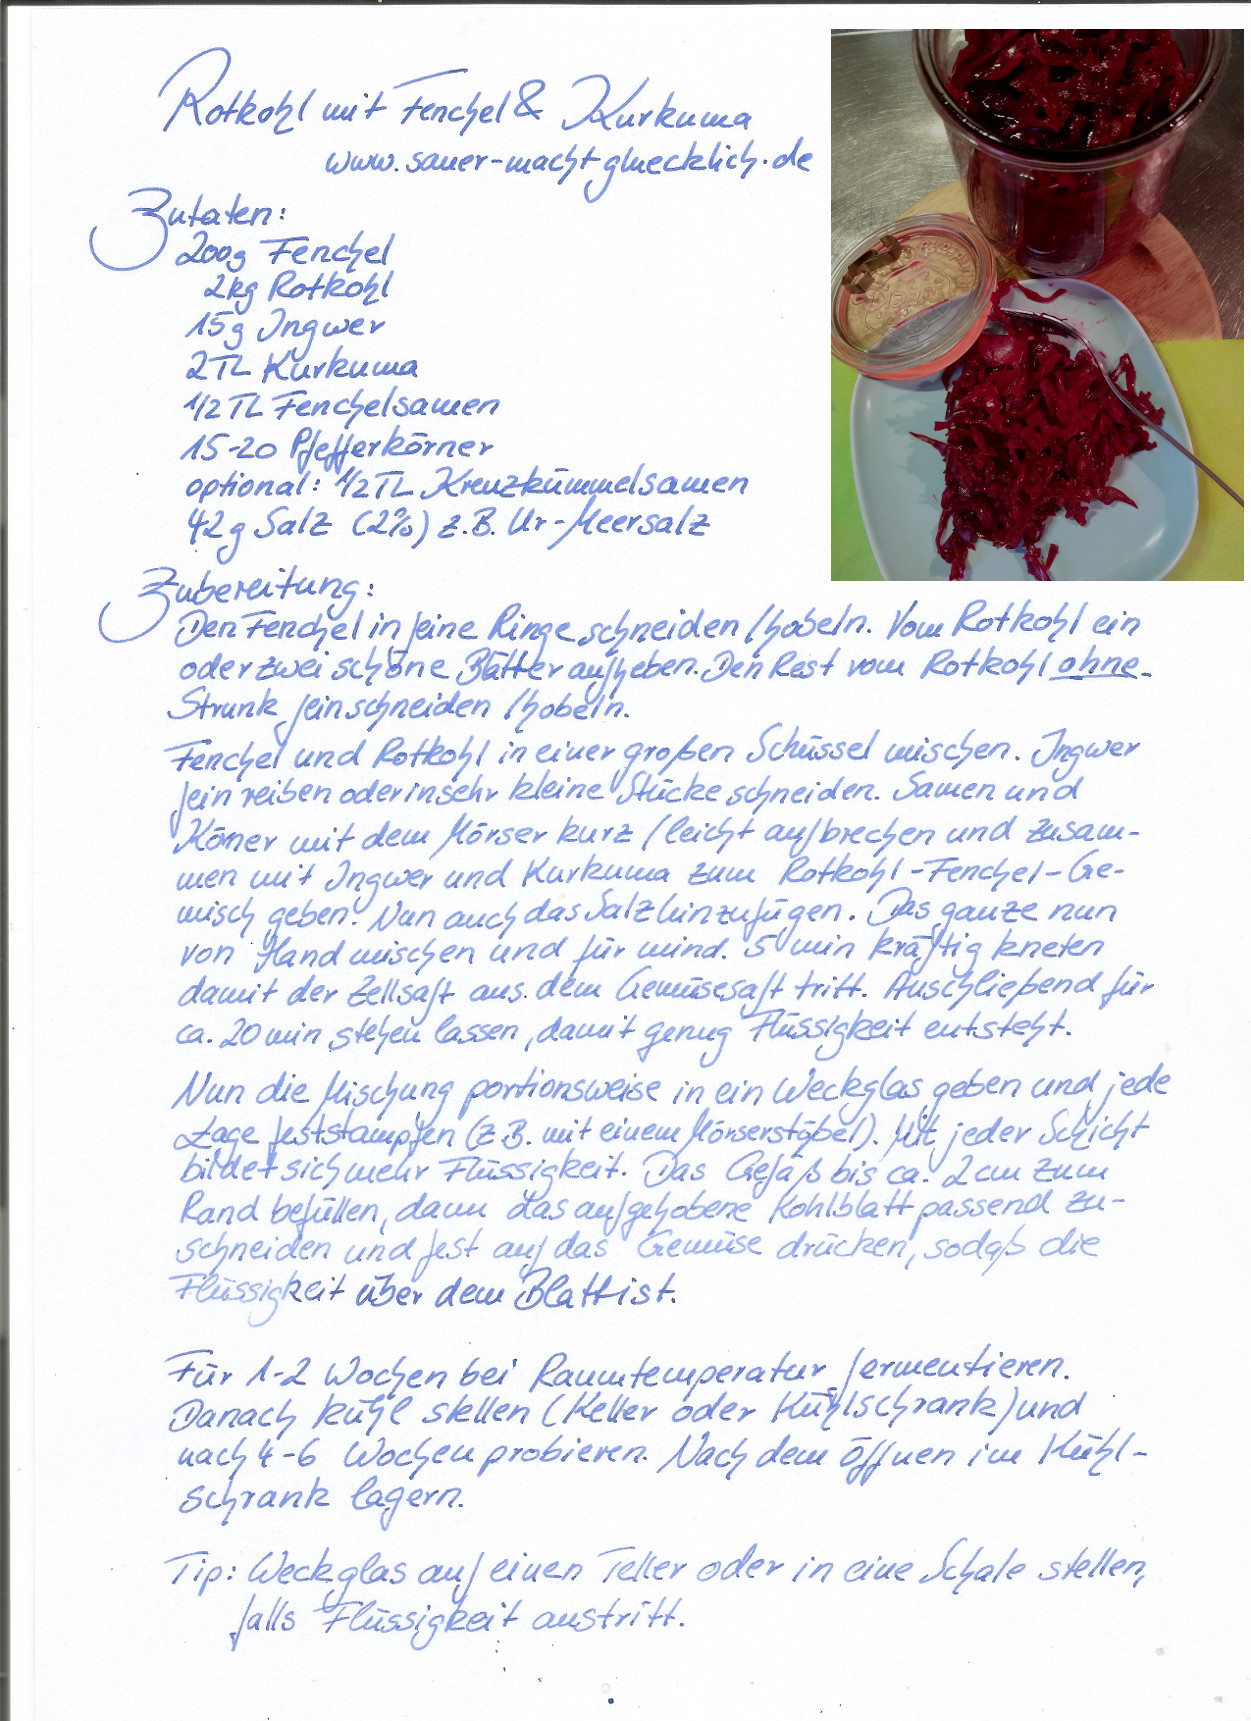 Rotkohl mit Fenchel & Kurkuma
www.sauer-macht-gluecklich.de
Zutaten:
200g Fenchel
2kg Rotkohl
15g Ingwer
2TL Kurkuma
1/2 TL Fenchelsamen
15-20 Pfefferkörner
optional: 1/2 TL Kreuzkümmelsamen
42g Salz (2%) z.B. Ur-Meersalz
Zubereitung:
Den Fenchel in feine Ringe schneiden/hobeln. Vom Rotkohl ein
oder zwei schöne Blätter aufheben. Den Rest vom Rotkohl ohne
Strunk fein schneiden/hobeln.
Fenchel und Rotkohl in einer großen Schüssel mischen. Ingwer
fein reiben oder in sehr kleine Stücke schneiden. Samen und
Körner mit dem Mörser kurz/leicht aufbrechen und zusam-
men mit Ingwer und Kurkuma zum Rotkohl-Fenchel-Ge-
misch geben. Nun auch das Salz hinzufügen. Das ganze nun
von Hand mischen und für mind. 5 min kräftig kneten
damit der Zellsaft aus dem Gemüsesaft tritt. Anschließend für
ca. 20 min stehen lassen, damit genug Flüssigkeit entsteht.
Nun die Mischung portionsweise in ein Weckglas geben und jede
Lage feststampfen (z.B. mit einem Mörserstößel). Mit jeder Schicht
bildet sich mehr Flüssigkeit. Das Gefäß bis ca. 2cm zum
Rand befüllen, dann das aufgehobene Kohlblatt passend zu-
schneiden und fest auf das Gemüse drücken, sodaß die
Flüssigkeit über dem Blatt ist.
Für 1-2 Wochen bei Raumtemperatur fermentieren.
Danach kühl stellen (Keller oder Kühlschrank) und
nach 4-6 Wochen probieren. Nach dem Öffnen im Kühl-
schrank lagern.
Tip: Weckglas auf einen Teller oder in eine Schale stellen,
falls Flüssigkeit austritt.